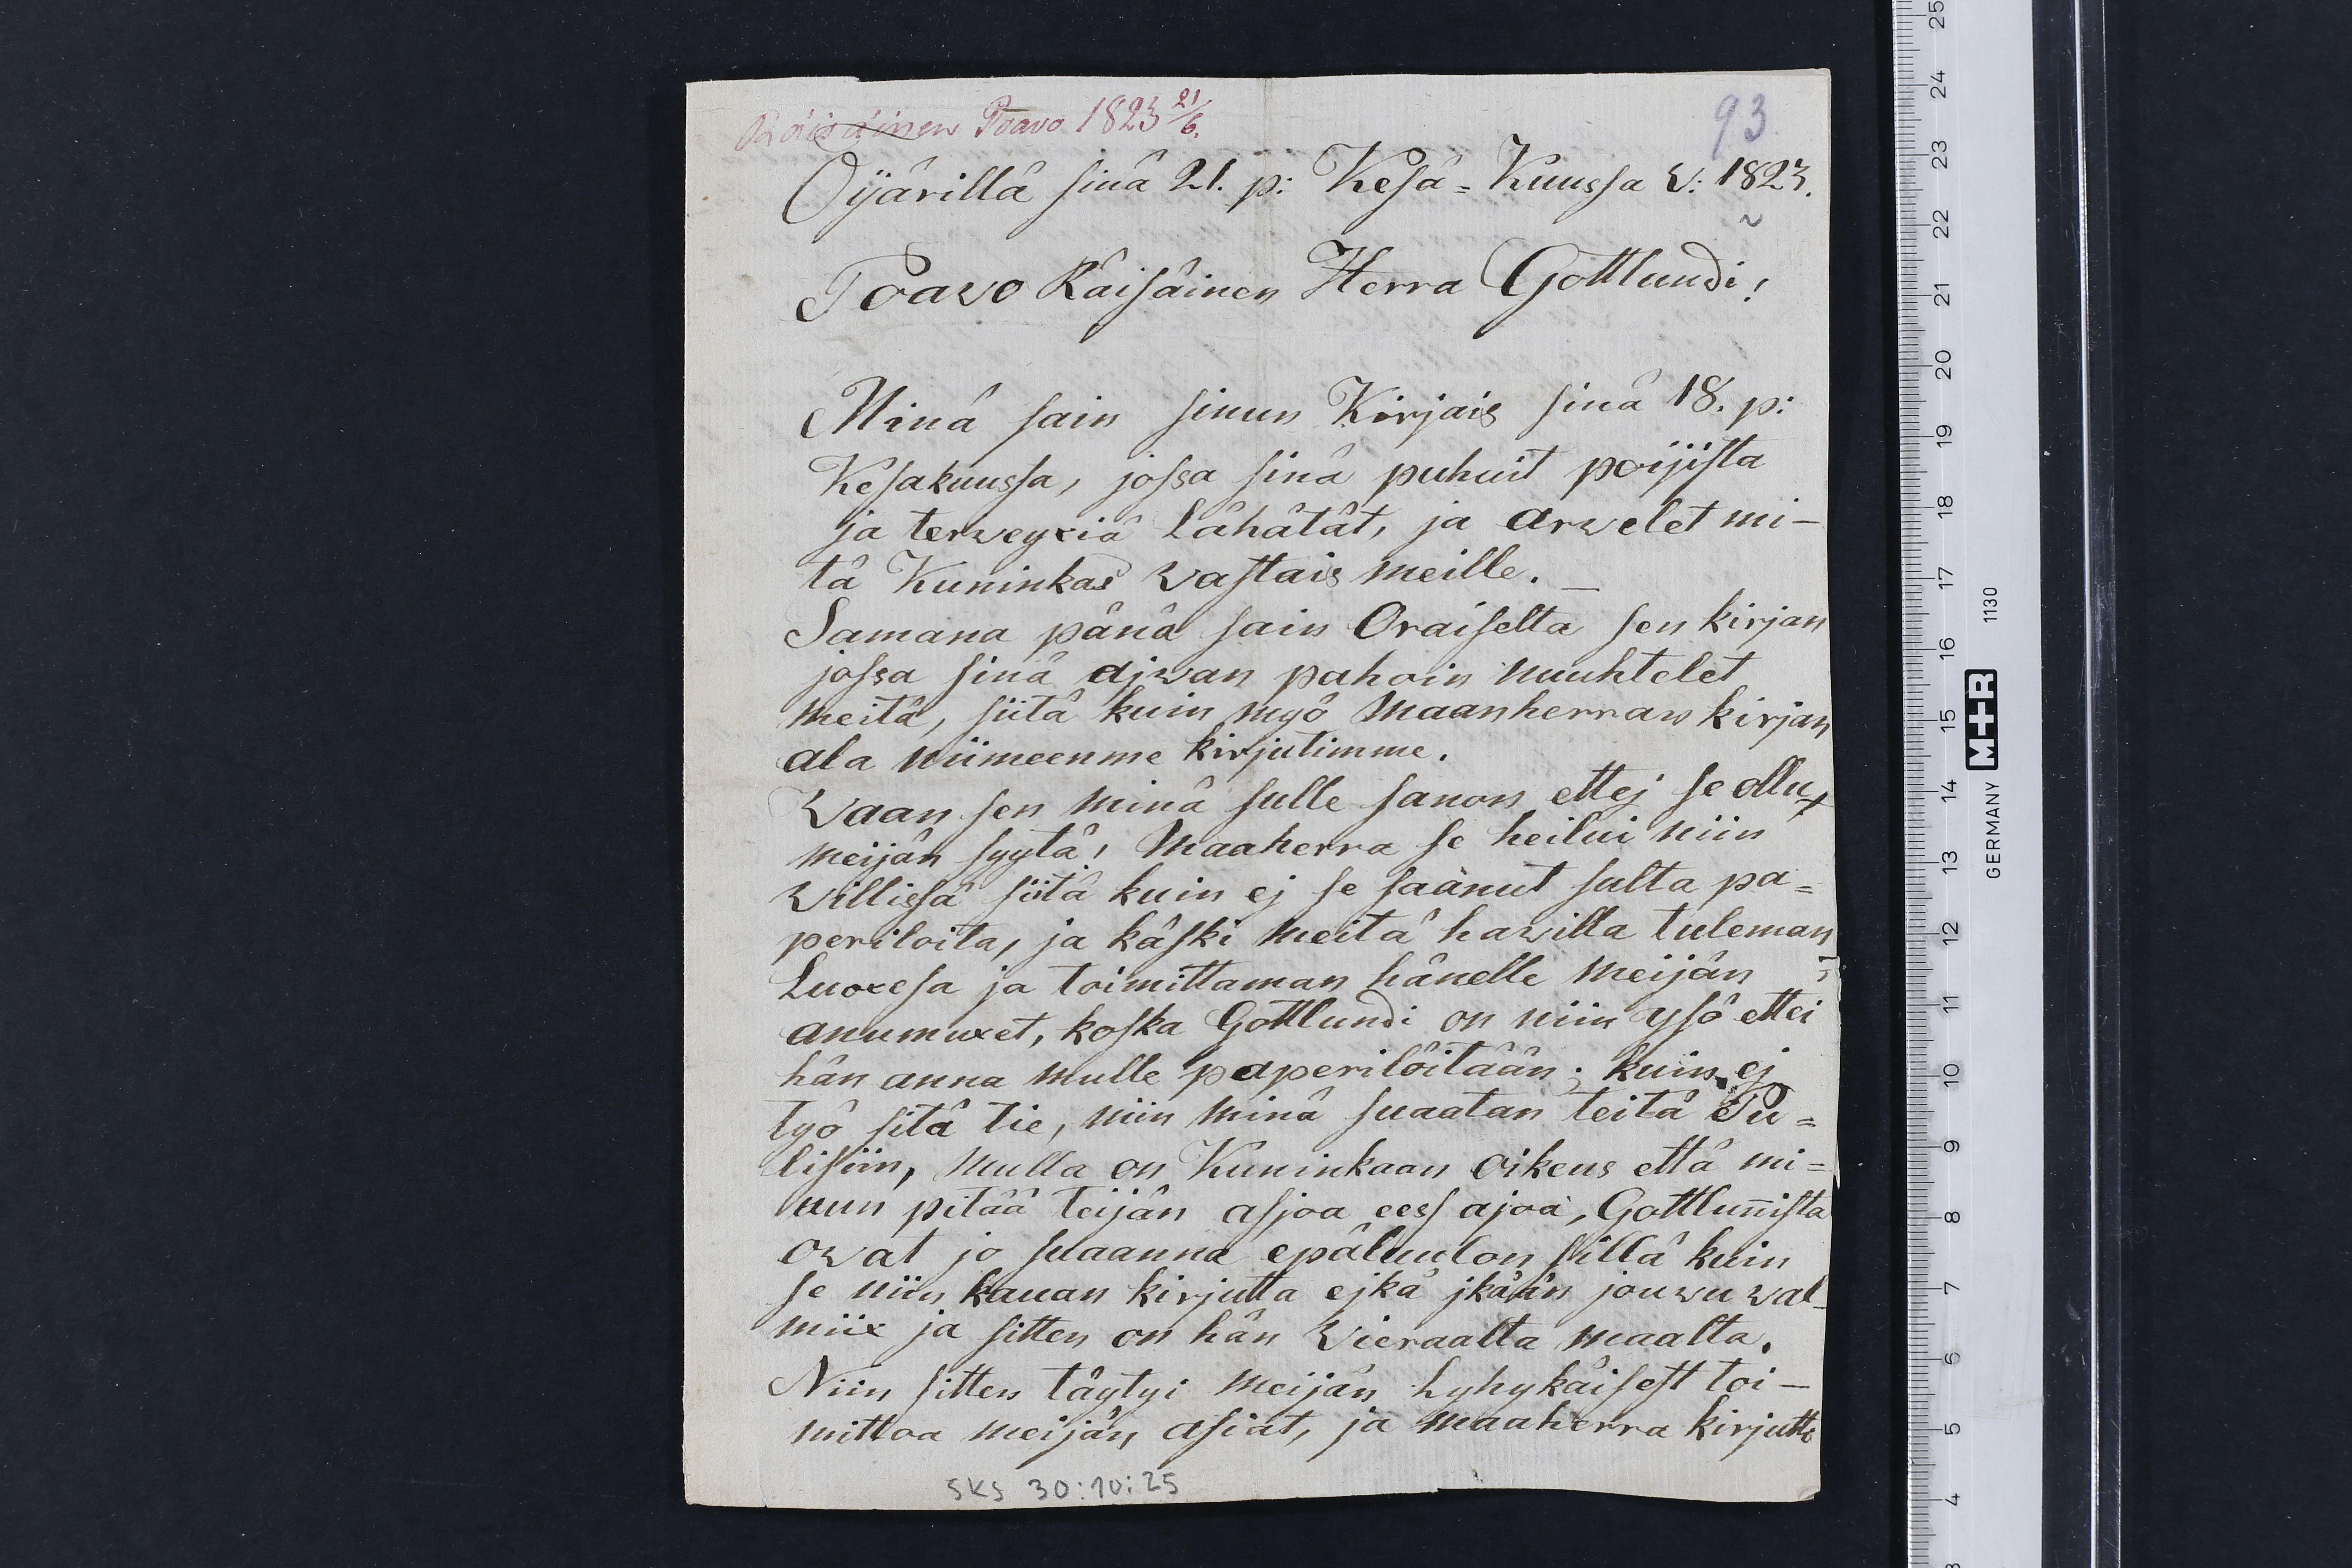 Räisäinen Poavo 1823 21/6.
93.
Öijärillä sinä 21. p: Kesä=Kuussa v: 1823.
Poavo Räisäinen Herra Gottlundi!
Minä sain sinun Kirjais sinä 18. p:
Kesakuussa, jossa sinä puhuit poijista
ja terveyxiä Lähätät, ja arvelet mi-
tä Kuninkas vastais meille. –
Samana pänä sain Oraiselta sen kirjan
jossa sinä ajvan pahoin nuuhtelet
meitä, siitä kuin myö Maanherran kirjan
ala niimeenme kirjutimme.
Vaan sen minä sulle sanon ettej se ollut
meijän syytä! Maaherra se heilui niin
villissä siitä kuin ej se saänut sulta pa=
periloita, ja käski meitä havilla tuleman
Luoxesa ja toimittaman hänelle meijän
anumuxet, koska Gottlundi on niin ysö ettei
hän anna mulle paperilöitään; kuin ej
työ sitä tie, niin minä suaatan teitä Pu=
lisiin, Mulla on Kuninkaan oikeus että mi=
nun pitää teijän asjoa eess ajoa, Gottlunista
ovat jo suaanna epäluulon sillä kuin
se niin kauan kirjutta ejkä jkään jouvu val-
miix ja sitten on hän Vieraalta maalta.
Niin sitten täytyi meijän Lyhykäisest toi-
mittoa meijän asiat, ja maaherra kirjutti
SKS 30:10:25
25
24
23
22
21
20
19
18
17
16
15
14
13
12
11
10
9
8
7
6
5
4
GERMANY M+R 1130